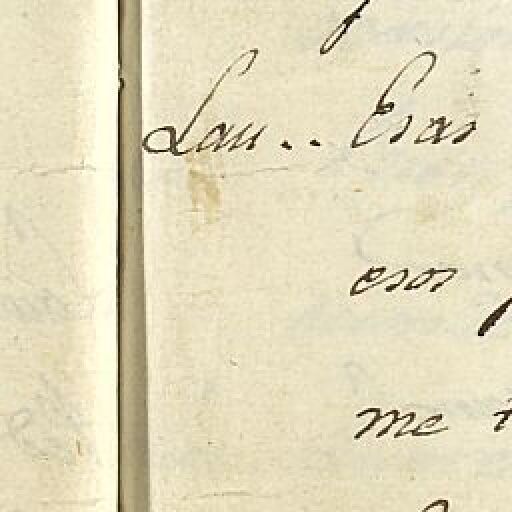 Lau.. Esas
esos
me